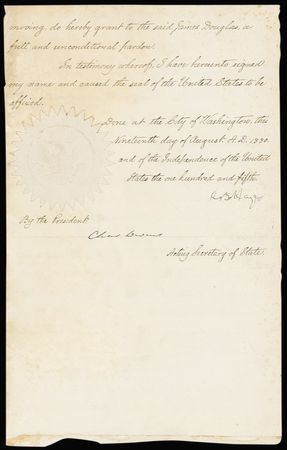 moving, do hereby grant to the said James Douglas, a
full and unconditional pardon.
In testimony whereof, I have hereunto signed
my name and caused the seal of the United States to be
affixed.
Done at the City of Washington, this
Nineteenth day of August A.D. 1880.
and of the Independence of the United
States the one hundred and fifth.
R B Hayes
By the President:
Acting Secretary of State.